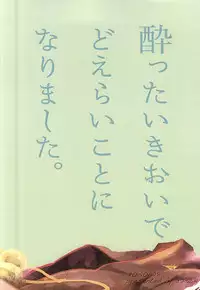 酔ったいきおいで
どえらいことに
なりました。